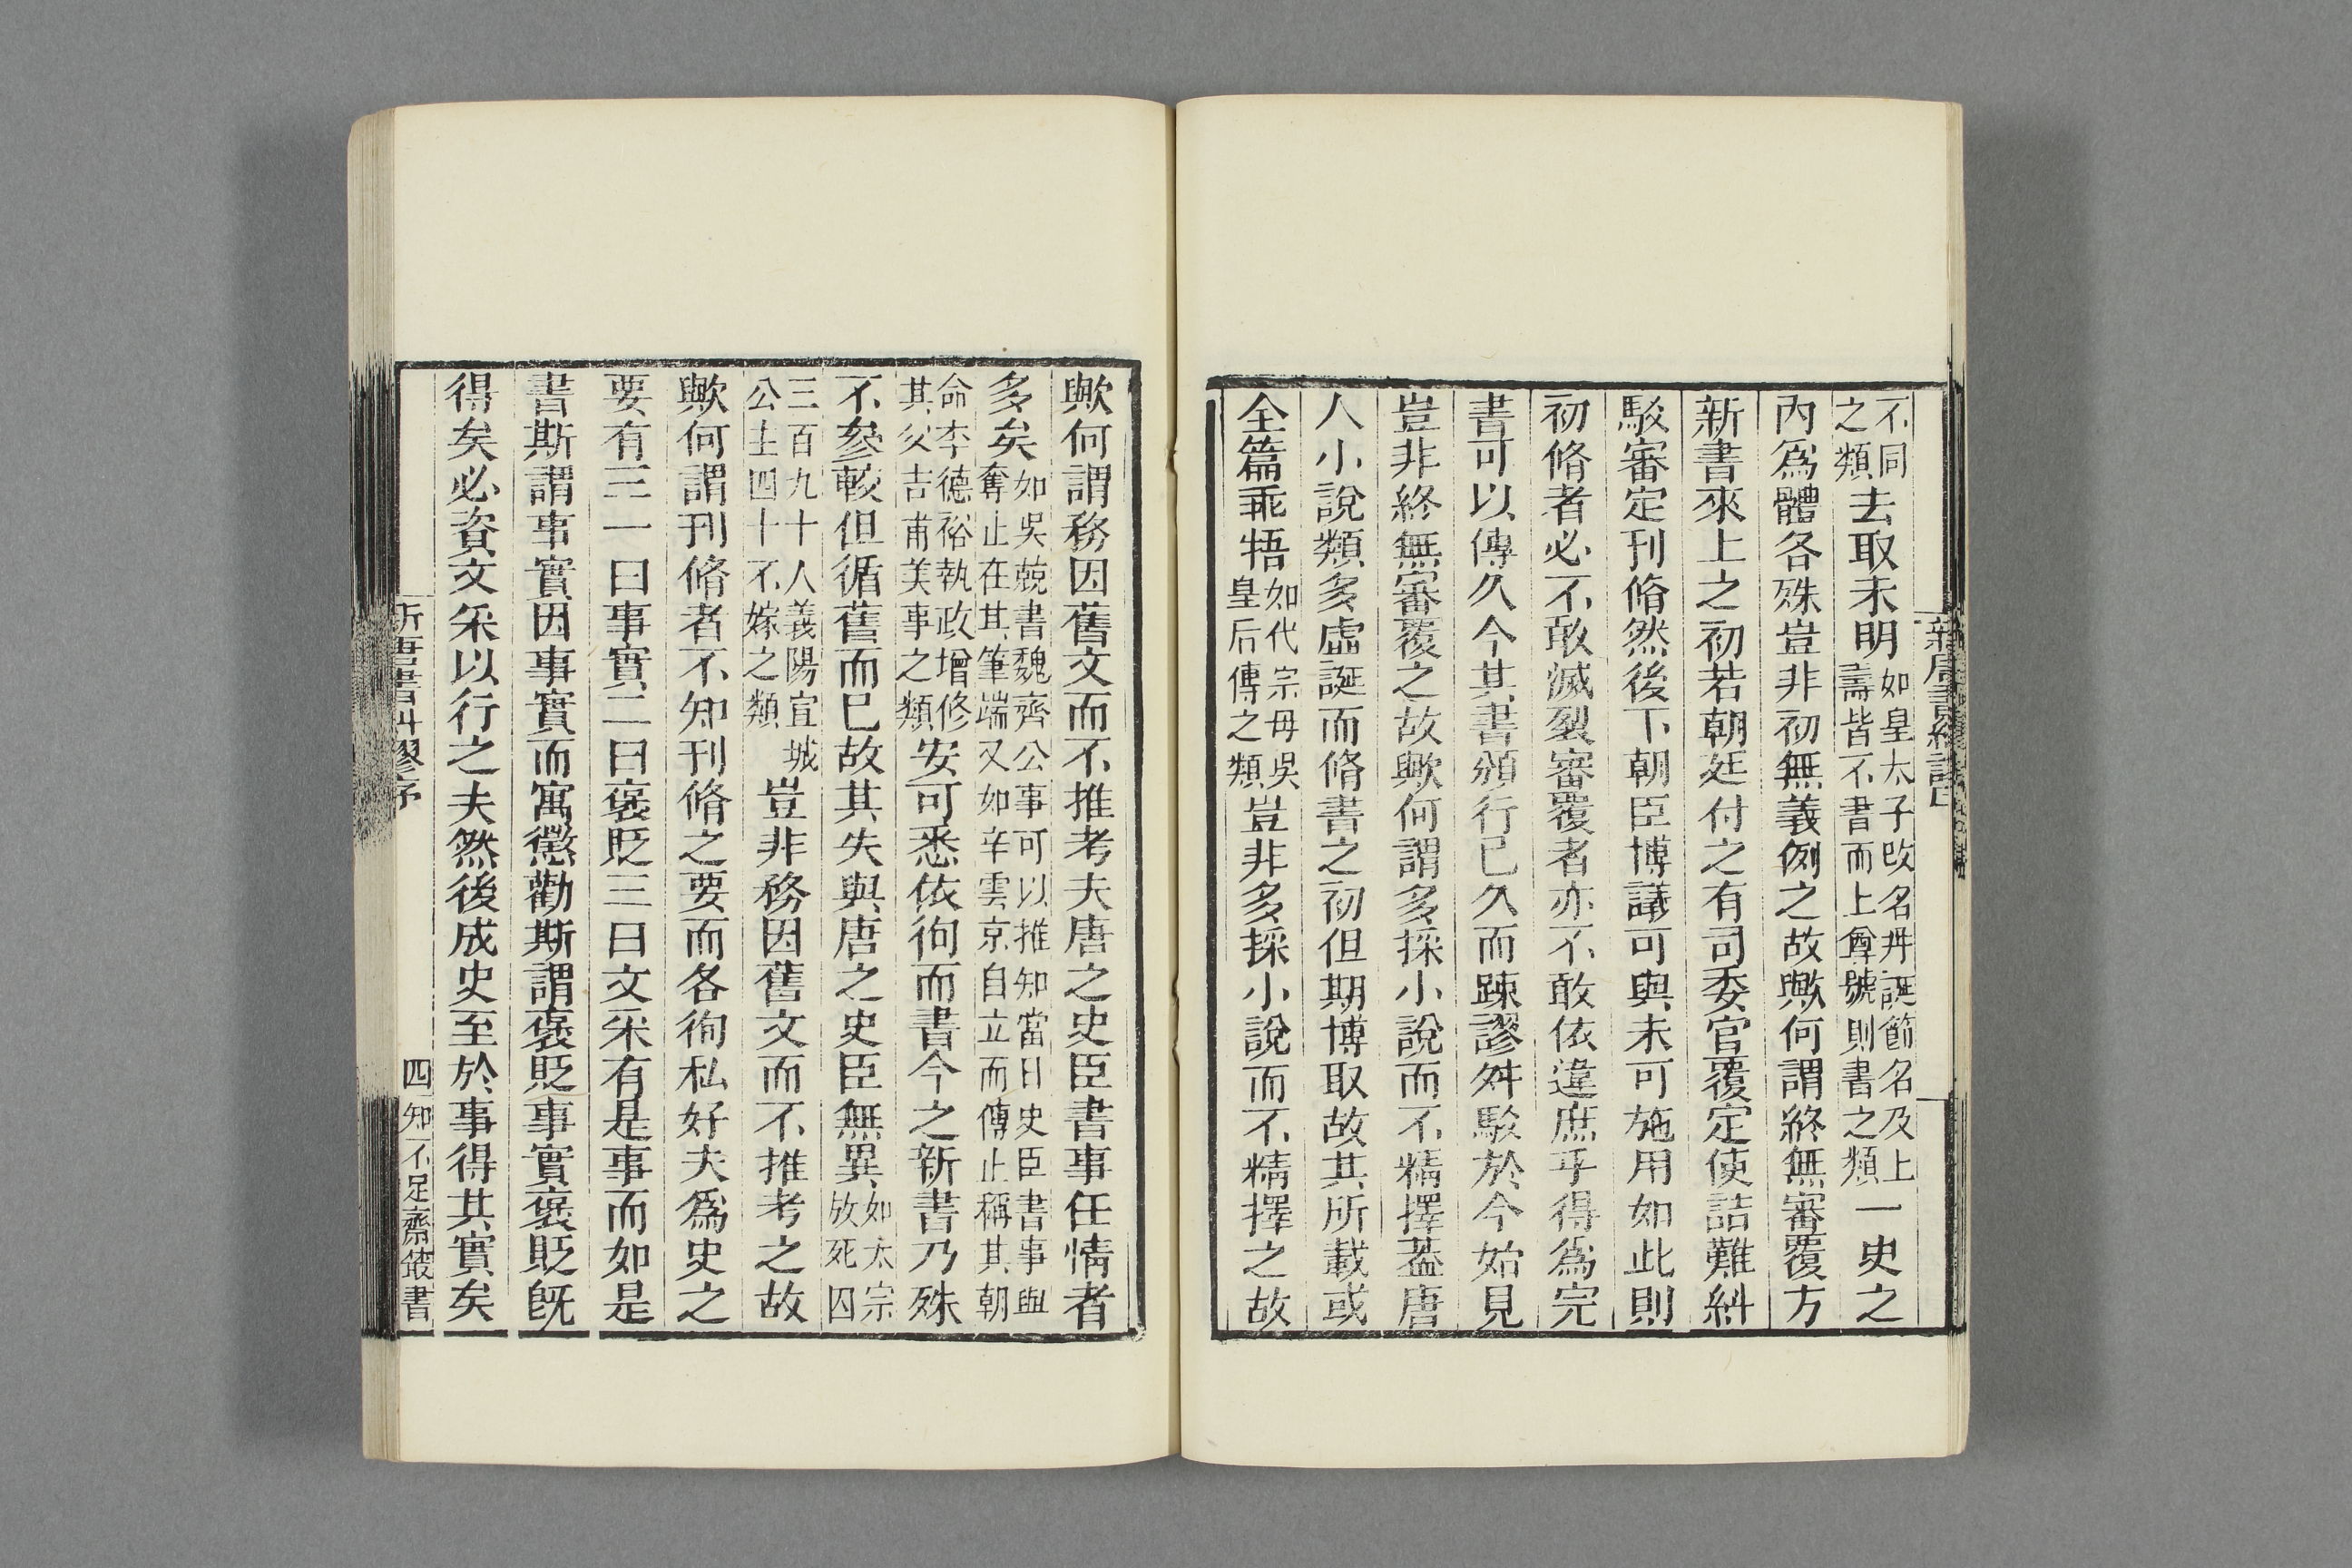 不同之類去取未明如皇太子改名冊誕節名及上壽皆不書而上尊號則書之類一史之
內爲體各殊豈非初無義例之故歟何謂終無審覆方
新書來上之初若朝廷付之有司委官覆定使詰難糾
駁審定刊脩然後下朝臣博議可與未可施用如此則
初脩者必不敢滅裂審覆者亦不敢依違庶乎得爲完
書可以傳久今其書頒行已久而踈謬舛駁於今始見
豈非終無審覆之故歟何謂多採小說而不精擇蓋唐
人小說類多虛誕而脩書之初但期博取故其所載或
全篇乖牾如代宗母吳皇后傳之類豈非多採小說而不精擇之故
歟何謂務因舊文而不推考夫唐之史臣書事任情者
多矣如吳兢書魏齊公事可以推知當日史臣書事與奪止在其筆端又如辛雲京自立而傳止稱其朝
命李德裕執政增修其父吉甫美事之類安可悉依徇而書今之新書乃殊
不參較但循舊而已故其失與唐之史臣無異如太宗放死囚
三百九十人義陽宣城公主四十不嫁之類豈非務因舊文而不推考之故
歟何謂刊脩者不知刊脩之要而各徇私好夫爲史之
要有三一曰事實二曰褒貶三曰文采有是事而如是
書斯謂事實因事實而寓懲勸斯謂褒貶事實褒貶旣
得矣必資文采以行之夫然後成史至於事得其實矣
新唐書糾謬序 四 知不足齋叢書